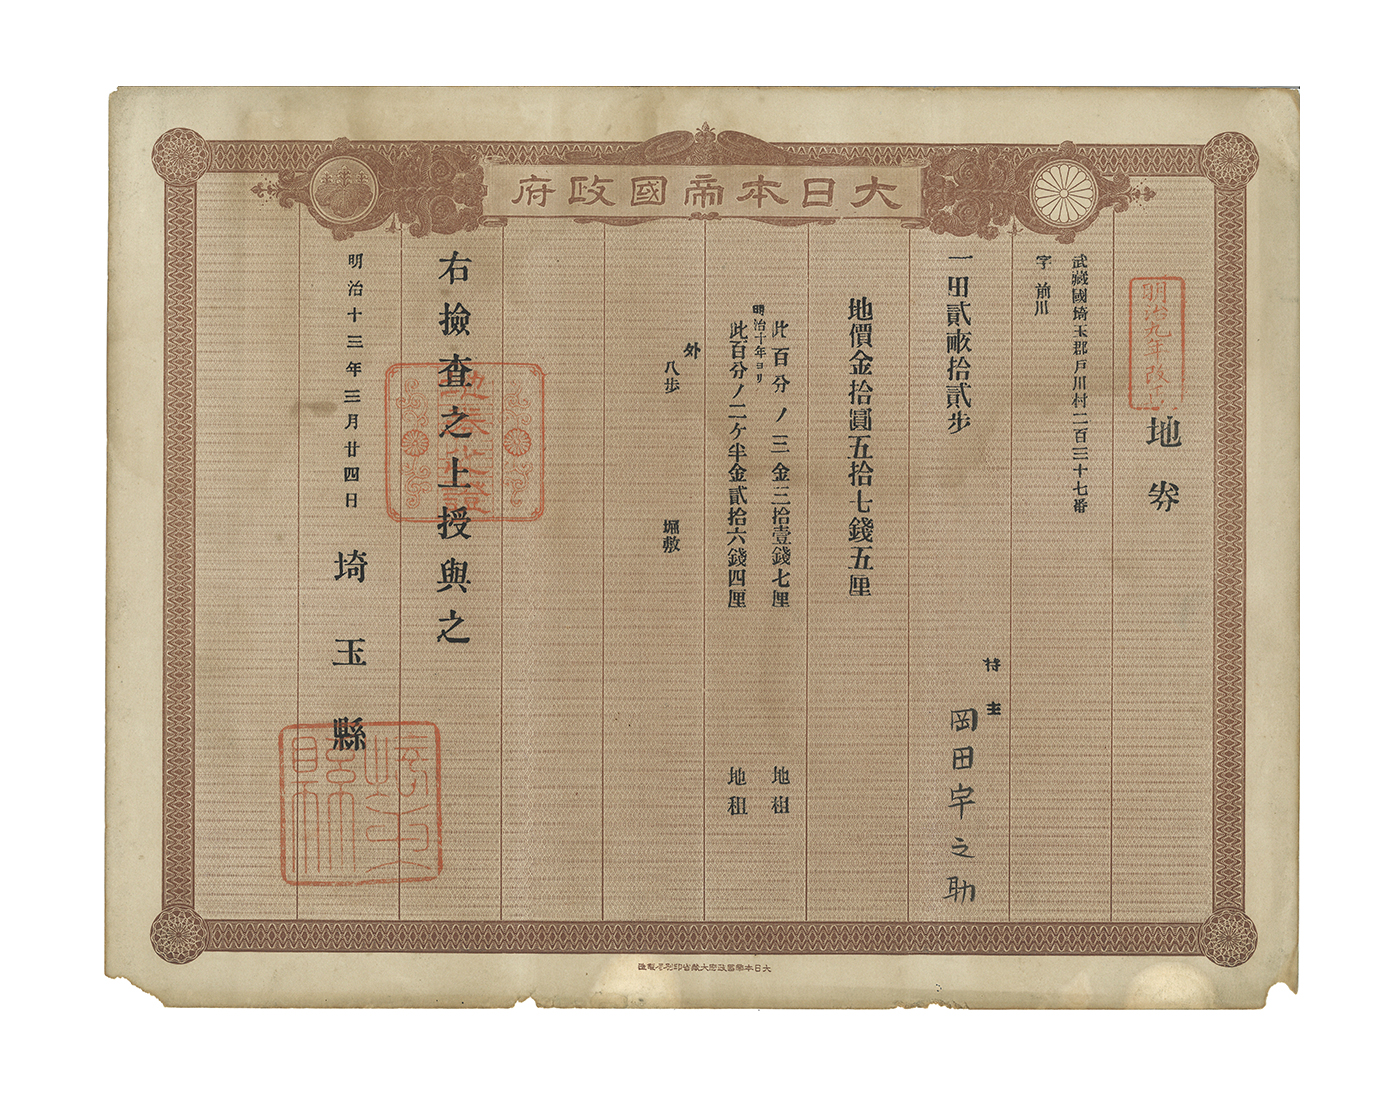 大日本帝國政府
明治九年改正
地券
武藏國埼玉郡戸川村二百三十七番
字 前川
一田貳畝拾貳步
持主 岡田宇之助
地價金拾圓五拾七錢五厘
此百分ノ三 金三拾壹錢七厘 地租
明治十年ヨリ
此百分ノ二ケ半金貳拾六錢四厘 地租
外
八步 堀敷
右撿査之上授與之
地券之證
明治十三年三月廿四日 埼玉縣
大日本帝國政府大藏省印刷局製造